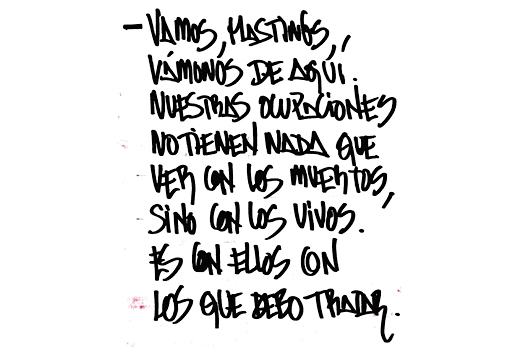 - VAMOS, MASTINOS,
VÁMONOS DE AQUI.
NUESTRAS OCUPACIONES
NO TIENEN NADA QUE
VER CON LOS MUERTOS,
SINO CON LOS VIVOS.
ES CON ELLOS CON
LOS QUE DEBO TRATAR.